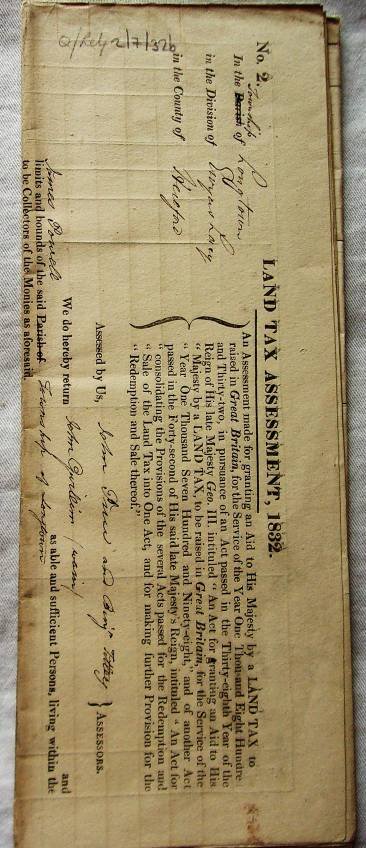 Q/Rel/2/7/32b
No. 2.
LAND TAX ASSESSMENT, 1832.
Township
In the Parish of Longtown
in the Division of Ewyas Lacy
in the County of Hereford
An Assessment made for granting an Aid to His Majesty by a LAND TAX to
raised in Great Britain, for the Service of the Year One Thousand Eight Hundre
and Thirty-two, in pursuance of an Act passed in the Thirty-eighth Year of the
Reign of His late Majesty Geo. III. intituled "An Act for granting an Aid to His
"Majesty by a LAND TAX, to be raised in Great Britain, for the Service of the
"Year One Thousand Seven Hundred and Ninety-eight," and of another Act
passed in the Forty-second of His said late Majesty's Reign, intituled "An Act for
"consolidating the Provisions of the several Acts passed for the Redemption and
"Sale of the Land Tax into One Act, and for making further Provision for the
"Redemption and Sale thereof."
Assessed by Us, John and Benjn } ASSESSORS.
We do hereby return John and
James Powell as able and sufficient Persons, living within the
limits and bounds of the said Parish of Township of Longtown
to be Collectors of the Monies as aforesaid.